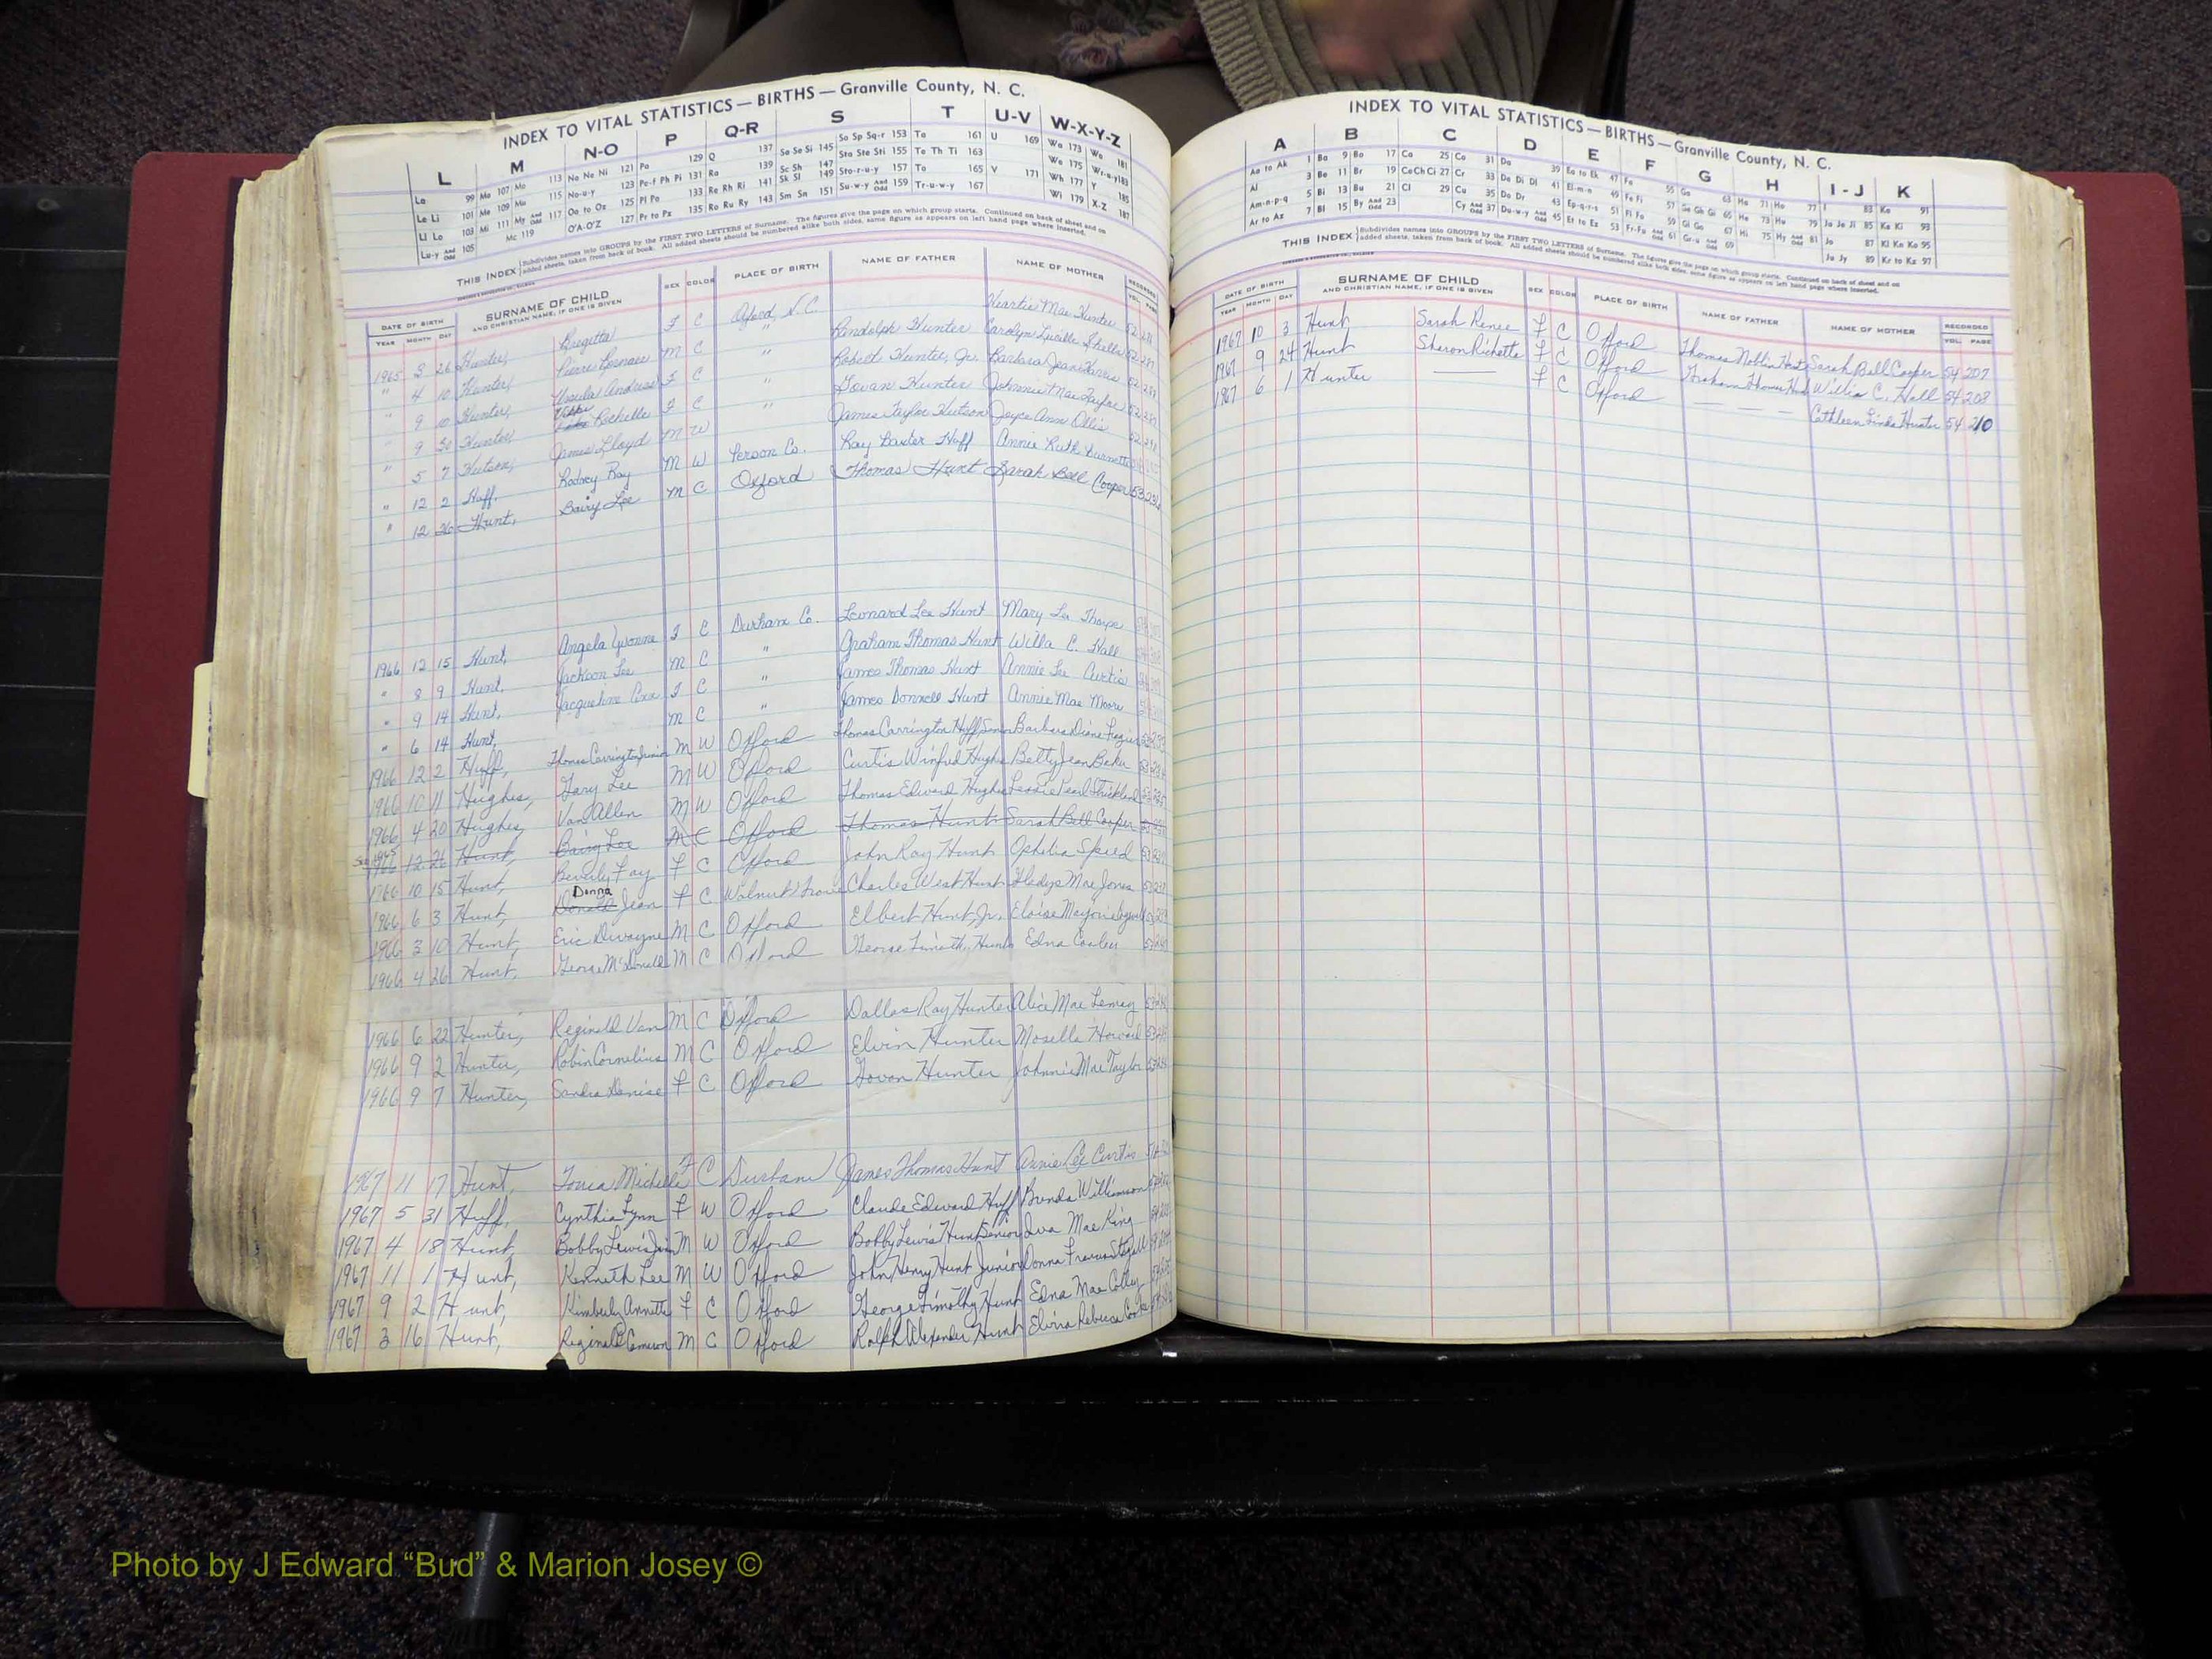 INDEX TO VITAL STATISTICS — BIRTHS — Granville County, N. C.
L M N-O P Q-R S T U-V W-X-Y-Z
La 99 Ma 107 Mo 113 Na Ne Ni 121 Pa 129 Q 137 Sa Se Si 145 So Sp Sq-r 153 Ta 161 U 169 Wa 173 Wo 181
Le Li 101 Me 109 Mu 115 No-u-y 123 Pe-f Ph Pi 131 Ra 139 Sc Sh 147 Sta Ste Sti 155 Te Th Ti 163 We 175 Wr-u-y 183
Ll Lo 103 Mi 111 My And Odd 117 Oo to Oz 125 Pl Po 133 Re Rh Ri 141 Sk Sl 149 Sto-r-u-y 157 To 165 V 171 Wh 177 Y 185
Lu-y And Odd 105 Mc 119 O'A-O'Z 127 Pr to Pz 135 Ro Ru Ry 143 Sm Sn 151 Su-w-y And Odd 159 Tr-u-w-y 167 Wi 179 X-Z 187
THIS INDEX Subdivides names into GROUPS by the FIRST TWO LETTERS of Surname. The figures give the page on which group starts. Continued on back of sheet and on
added sheets, taken from back of book. All added sheets should be numbered alike both sides, same figure as appears on left hand page where inserted.
DATE OF BIRTH SURNAME OF CHILD SEX COLOR PLACE OF BIRTH NAME OF FATHER NAME OF MOTHER RECORDED
YEAR MONTH DAY AND CHRISTIAN NAME, IF ONE IS GIVEN VOL. PAGE
1965 3 26 Hunter, Brigetta F C Oxford, N.C. Mae Hunter
" 4 10 Hunter, Pierre M C " Randolph Hunter Carolyn Lucille
" 9 10 Hunter, Ursula F C " Robert Hunter, Jr. Barbara Jean Harris
" 9 30 Hunter Rochelle F C " Govan Hunter Johnnie Mae Taylor
" 5 7 Hutson, James Lloyd M W James Taylor Hutson Joyce Ann Ollis
" 12 2 Huff, Rodney Ray M W Person Co. Ray Baxter Huff Annie Ruth Burnette
" 12 26 Hunt, Bairy Lee M C Oxford Thomas Hunt Sarah Bell Cooper 53
1966 12 15 Hunt, Angela Yvonne F C Durham Co. Leonard Lee Hunt Mary Lee Thorpe
" 8 9 Hunt, Jackson Lee M C " Graham Thomas Hunt Willa C. Hall
" 9 14 Hunt, Jacqueline F C " James Thomas Hunt Annie Lee Curtis
" 6 14 Hunt, M C " James Donnell Hunt Annie Mae Moore
1966 12 2 Huff, Thomas Carrington Junior M W Oxford Thomas Carrington Huff, Senior Barbara Diane Frazier
1966 10 11 Hughes, Gary Lee M W Oxford Curtis Winfred Hughes Betty Jean
1966 4 20 Hughes, Van Allen M W Oxford Thomas Edward Hughes Pearl Strickland
1966 12 26 Hunt, Bairy Lee M C Oxford Thomas Hunt Sarah Bell Cooper
1966 10 15 Hunt, Beverly Fay F C Oxford John Ray Hunt Ophelia Speed
1966 6 3 Hunt, Donald Donna Jean F C Walnut Grove Charles West Hunt Gladys Mae Jones
1966 3 10 Hunt, Eric Dwayne M C Oxford Elbert Hunt, Jr. Eloise
1966 4 26 Hunt, George McDonald M C Oxford George Timothy Hunt Edna
1966 6 22 Hunter, Reginald Van M C Oxford Dallas Ray Hunter Alice Mae
1966 9 2 Hunter, Robin Cornelius M C Oxford Elvin Hunter Mosella Howard
1966 9 7 Hunter, Sandra Denise F C Oxford Govan Hunter Johnnie Mae Taylor
1967 11 17 Hunt, Michelle F C Durham James Thomas Hunt Annie Lee Curtis
1967 5 31 Huff, Cynthia Lynn F W Oxford Claude Edward Huff Brenda Williamson
1967 4 18 Hunt, Bobby Lewis M W Oxford Bobby Lewis Hunt Senior Iva Mae King
1967 11 1 Hunt, Kenneth Lee M W Oxford John Henry Hunt Junior Donna Frances
1967 9 2 Hunt, Kimberly Annette F C Oxford George Timothy Hunt Edna Mae
1967 3 16 Hunt, Reginald Cameron M C Oxford Ralph Alexander Hunt Rebecca
INDEX TO VITAL STATISTICS — BIRTHS — Granville County, N. C.
A B C D E F G H I-J K
Aa to Ak 1 Ba 9 Bo 17 Ca 25 Co 31 Da 39 Ea to Ek 47 Fa 55 Ga 63 Ha 71 Ho 77 I 83 Ka 91
Al 3 Be 11 Br 19 Ce Ch Ci 27 Cr 33 De Di Dl 41 El-m-n 49 Fe Fi 57 Ge Gh Gi 65 He 73 Hu 79 Ja Je Ji 85 Ke Ki 93
Am-n-p-q 5 Bi 13 Bu 21 Cl 29 Cu 35 Do Dr 43 Ep-q-r-s 51 Fl Fo 59 Gl Go 67 Hi 75 Hy And Odd 81 Jo 87 Kl Kn Ko 95
Ar to Az 7 Bl 15 By And Odd 23 Cy And Odd 37 Du-w-y And Odd 45 Et to Ez 53 Fr-Fu And Odd 61 Gr-u And Odd 69 Ju Jy 89 Kr to Kz 97
THIS INDEX Subdivides names into GROUPS by the FIRST TWO LETTERS of Surname. The figures give the page on which group starts. Continued on back of sheet and on
added sheets, taken from back of book. All added sheets should be numbered alike both sides, same figure as appears on left hand page where inserted.
DATE OF BIRTH SURNAME OF CHILD SEX COLOR PLACE OF BIRTH NAME OF FATHER NAME OF MOTHER RECORDED
YEAR MONTH DAY AND CHRISTIAN NAME, IF ONE IS GIVEN VOL. PAGE
1967 10 3 Hunt Sarah Renee F C Oxford Thomas Noblin Hunt Sarah Bell Cooper 54 207
1967 9 24 Hunt Sharon Richetta F C Oxford Graham Thomas Hunt Willia C. Hall 54 208
1967 6 1 Hunter — F C Oxford — — — Cathleen Linda Hunter 54 210
Photo by J Edward “Bud” & Marion Josey ©